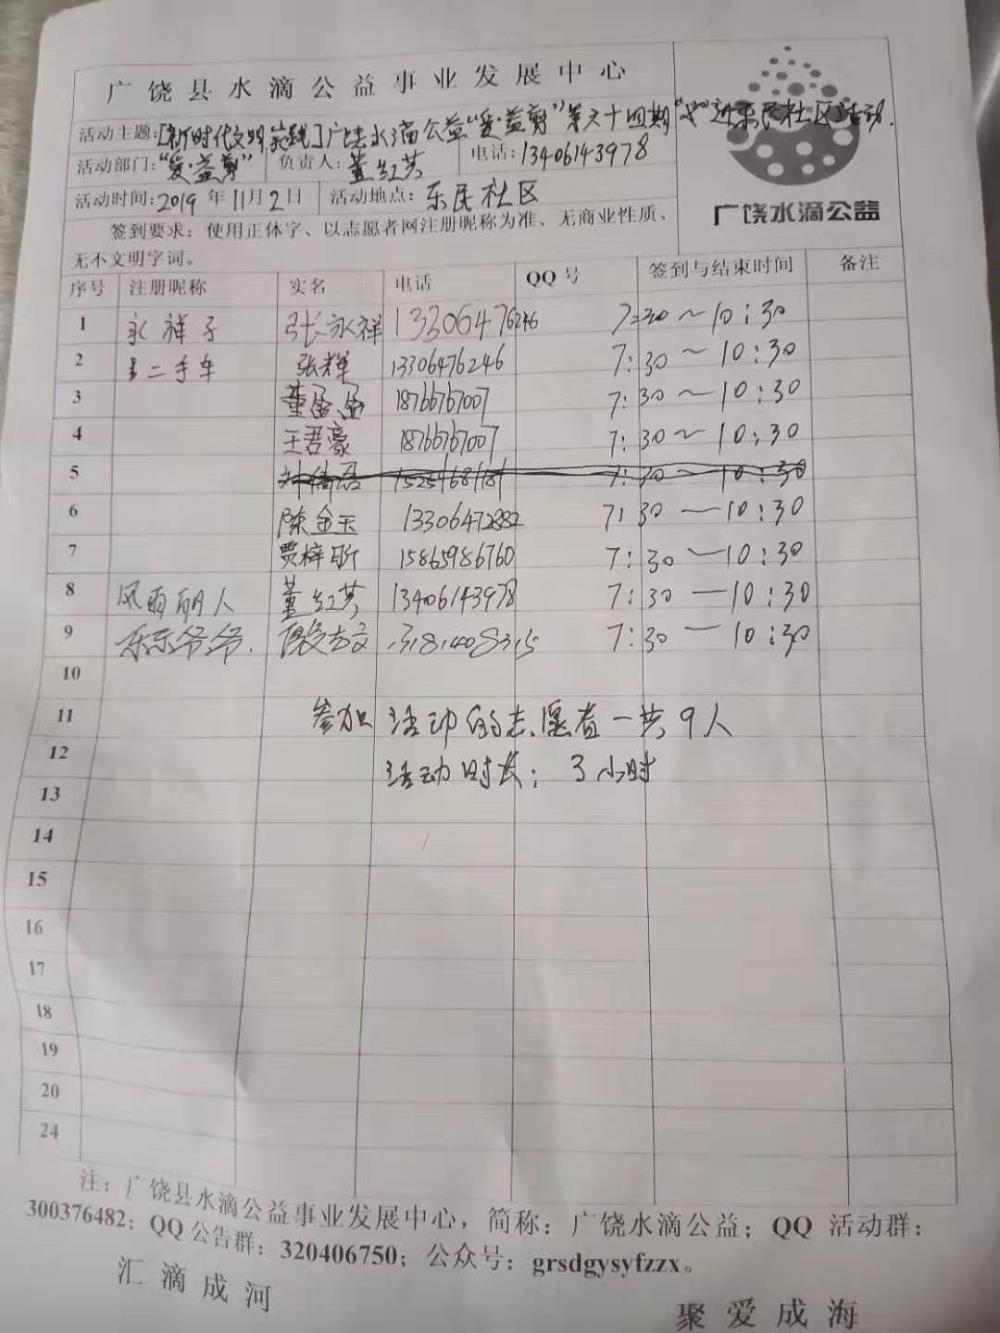 广饶县水滴公益事业发展中心
活动主题:[新时代文明实践]广饶水滴公益"爱·益剪"第六十四期 进乐民社区活动.
活动部门:"爱·益剪" 负责人:董红英 电话:13406143978
活动时间:2019年11月2日 活动地点:乐民社区
广饶水滴公益
签到要求:使用正体字、以志愿者网注册昵称为准、无商业性质、
无不文明字词。
序号 注册昵称 实名 电话 QQ号 签到与结束时间 备注
1 永祥子 张永祥 13306476246 7:30～10:30
2 二手车 张辉 13306476246 7:30～10:30
3 董孟孟 18766767007 7:30～10:30
4 王君豪 18766767007 7:30～10:30
5 7:30～10:30
6 陈金玉 13306472882 7:30—10:30
7 贾梓昕 15865986760 7:30—10:30
8 风雨丽人 董红英 13406143978 7:30—10:30
9 乐乐爷爷. 7:30—10:30
10
11 参加活动的志愿者一共9人
12 活动时长:3小时
13
14
15
16
17
18
19
20
24
注:广饶县水滴公益事业发展中心,简称:广饶水滴公益;QQ 活动群:
300376482;QQ公告群:320406750;公众号:grsdgysyfzzx。
汇滴成河
聚爱成海